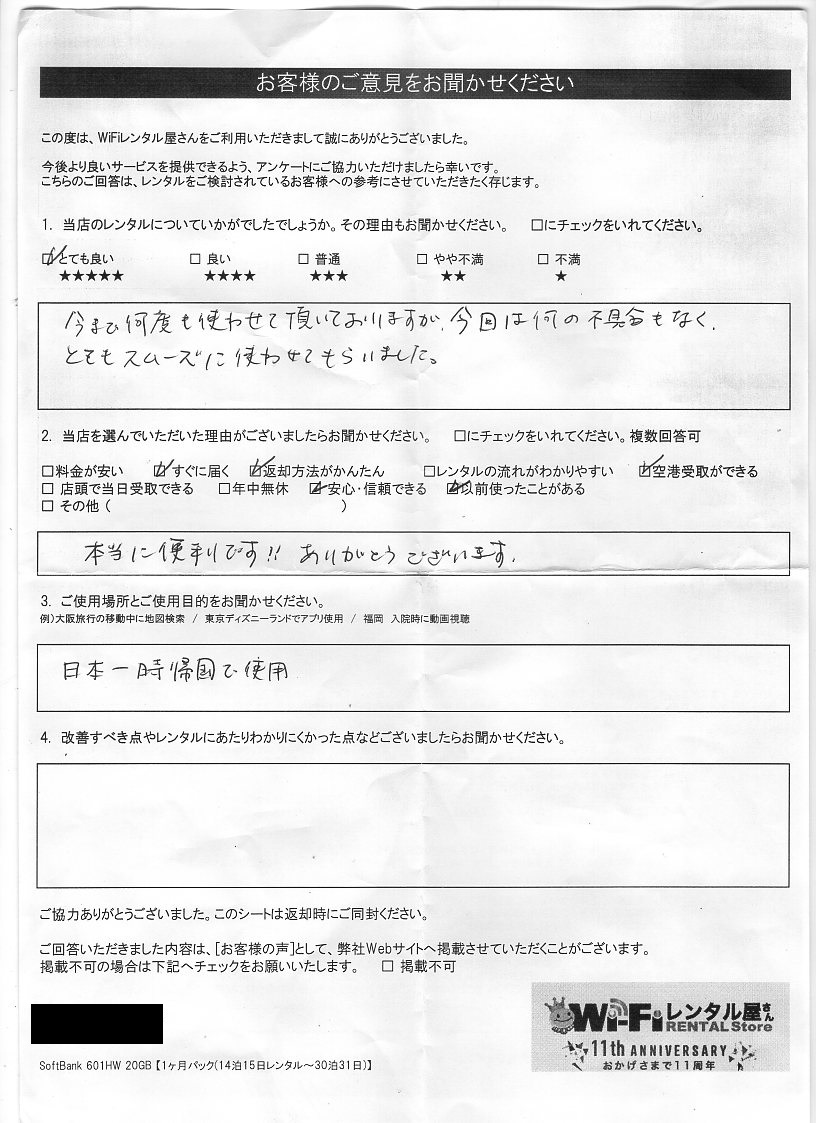 お客様のご意見をお聞かせください
この度は、WiFiレンタル屋さんをご利用いただきまして誠にありがとうございました。
今後より良いサービスを提供できるよう、アンケートにご協力いただけましたら幸いです。
こちらのご回答は、レンタルをご検討されているお客様への参考にさせていただきたく存じます。
1. 当店のレンタルについていかがでしたでしょうか。その理由もお聞かせください。 □にチェックをいれてください。
☑とても良い □ 良い □ 普通 □ やや不満 □ 不満
★★★★★ ★★★★ ★★★ ★★ ★
今まで何度も使わせて頂いておりますが、今回は何の不具合もなく、
とてもスムーズに使わせてもらいました。
2. 当店を選んでいただいた理由がございましたらお聞かせください。 □にチェックをいれてください。複数回答可
□料金が安い ☑すぐに届く ☑返却方法がかんたん □レンタルの流れがわかりやすい ☑空港受取ができる
□ 店頭で当日受取できる □年中無休 ☑安心・信頼できる ☑以前使ったことがある
□ その他 ( )
本当に便利です!! ありがとうございます.
3. ご使用場所とご使用目的をお聞かせください。
例)大阪旅行の移動中に地図検索 / 東京ディズニーランドでアプリ使用 / 福岡 入院時に動画視聴
日本一時帰国で使用
4. 改善すべき点やレンタルにあたりわかりにくかった点などございましたらお聞かせください。
ご協力ありがとうございました。このシートは返却時にご同封ください。
ご回答いただきました内容は、[お客様の声]として、弊社Webサイトへ掲載させていただくことがございます。
掲載不可の場合は下記へチェックをお願いいたします。 □ 掲載不可
Wi-Fiレンタル屋さん
RENTAL Store
11th ANNIVERSARY
おかげさまで11周年
SoftBank 601HW 20GB【1ヶ月パック(14泊15日レンタル～30泊31日)】